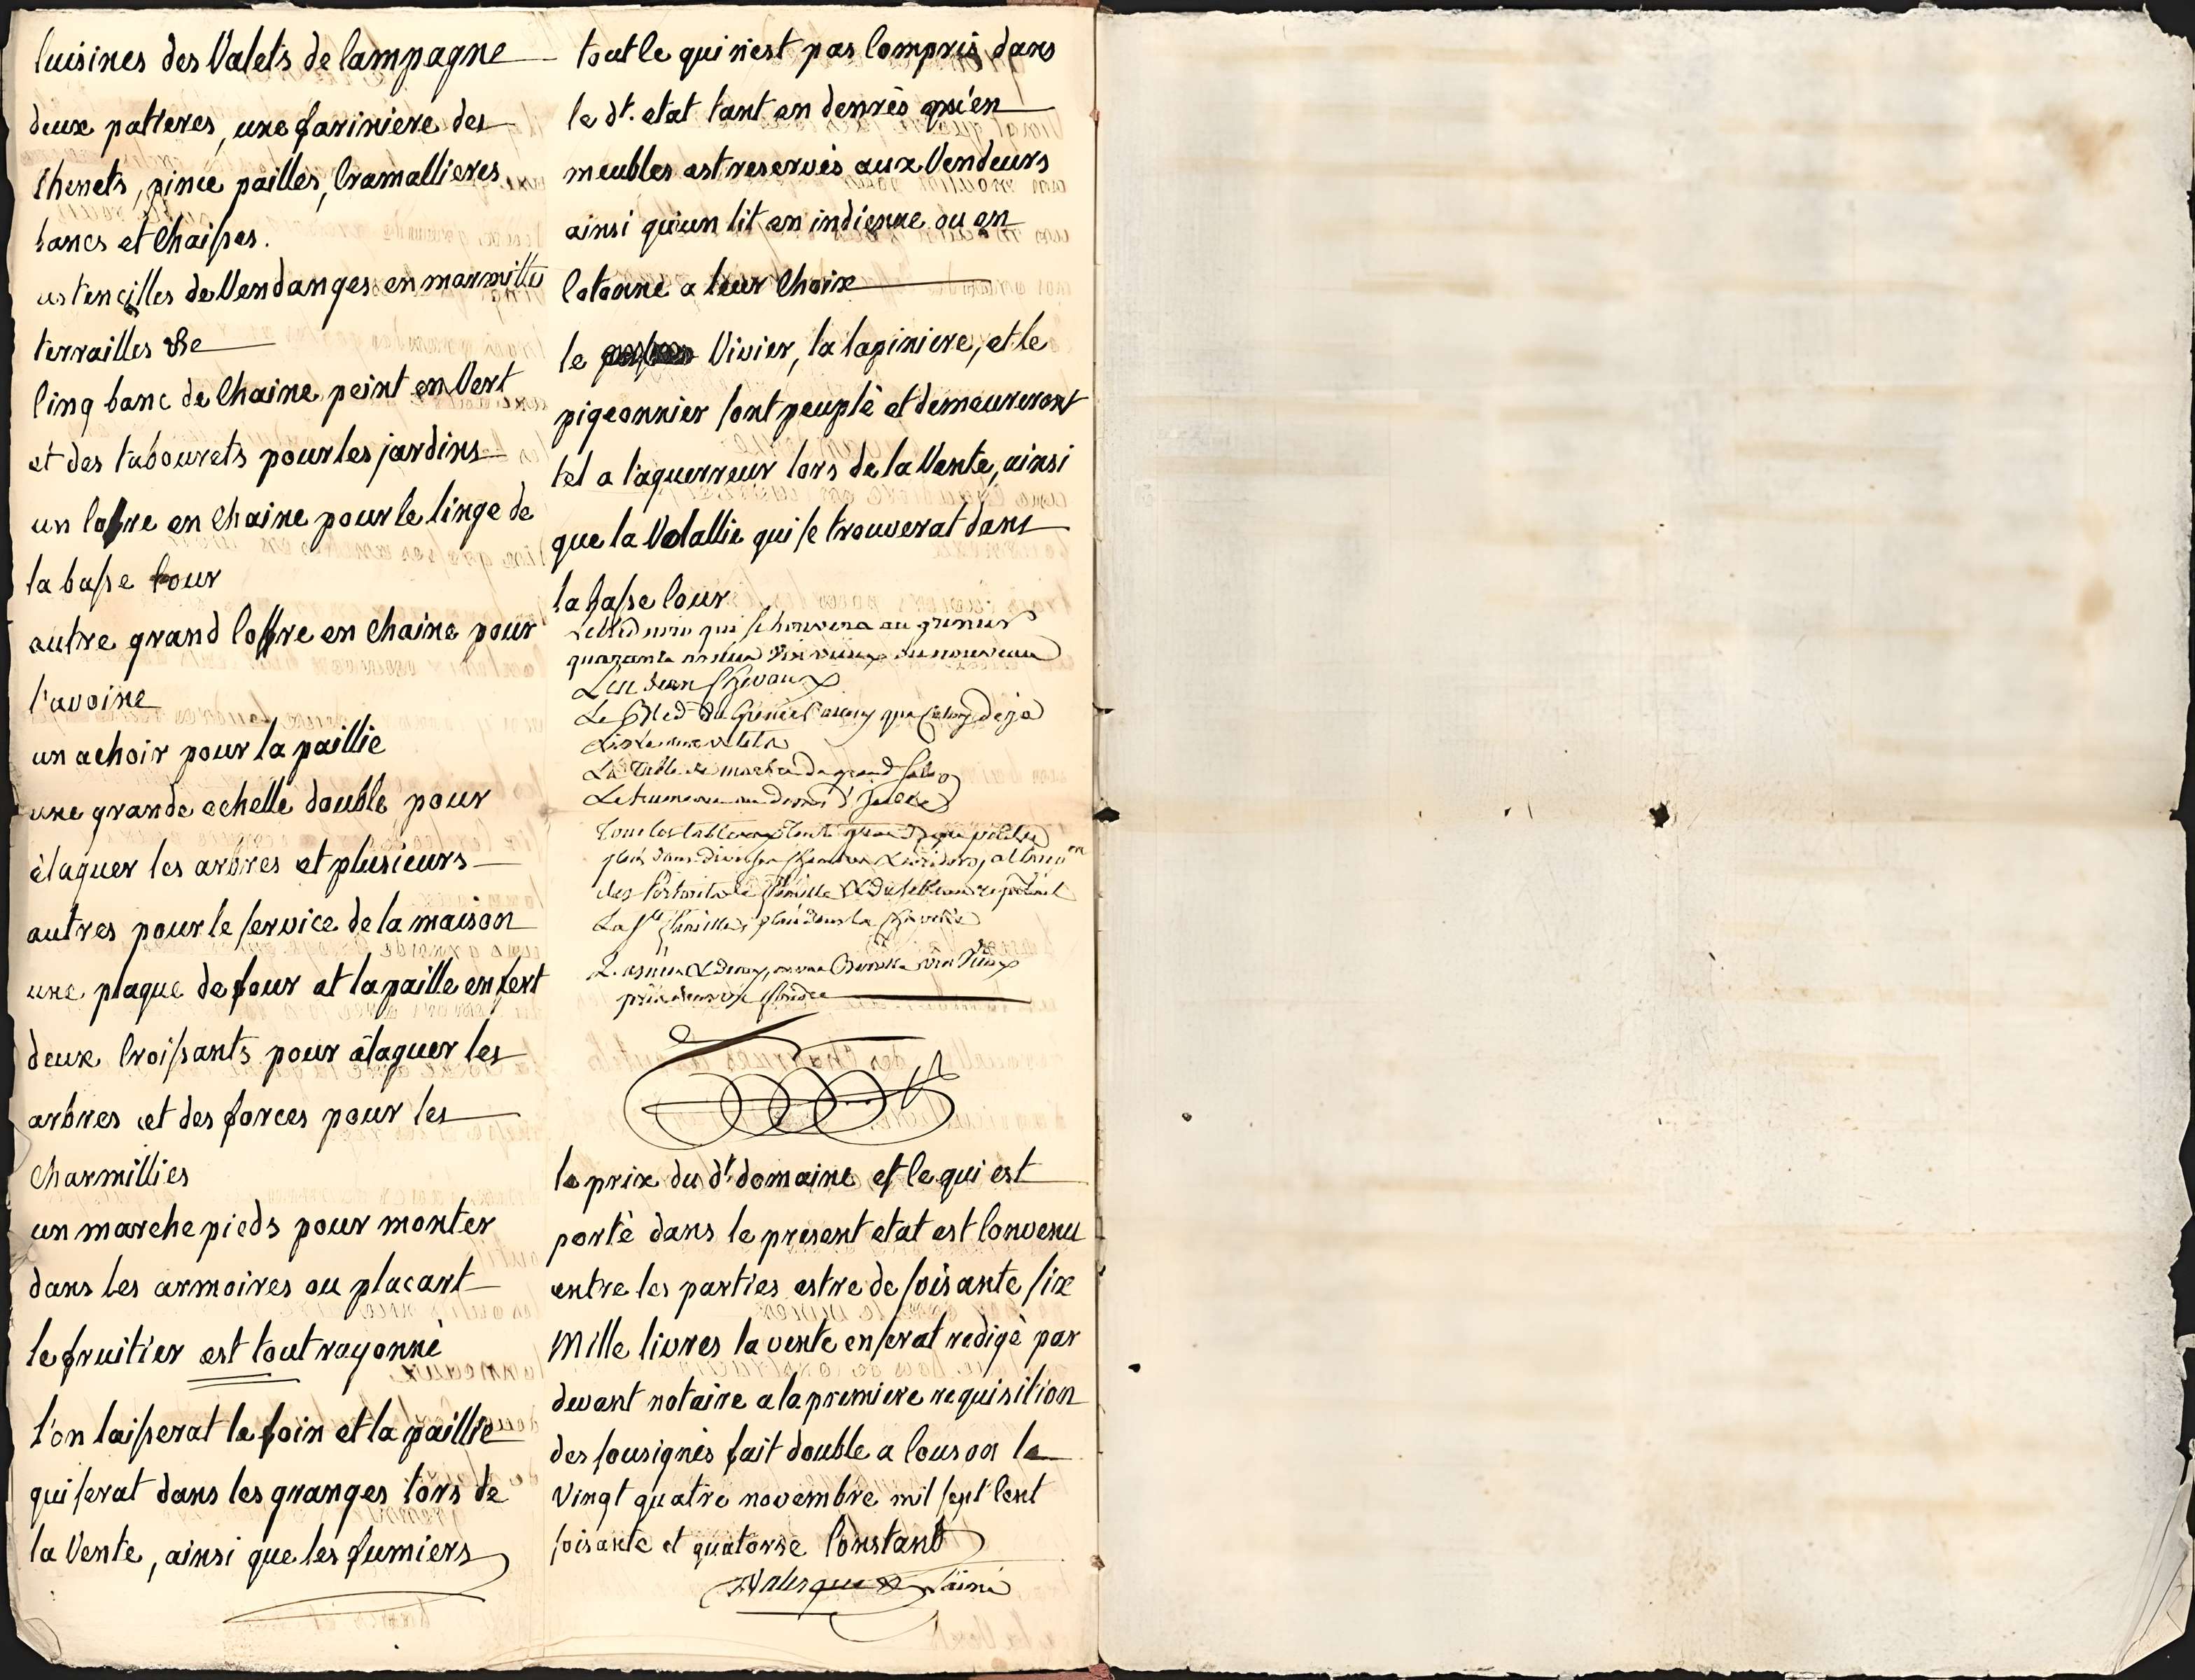 Cuisines des Valets de Campagne
deux patieres, une fariniere des
Chenets, pince pailles, Cramallieres
bancs et Chaises.
ustencilles de Vendanges en marmitte
terrailles &c
Cinq banc de Chaine peint en Vert
et des tabourets pour les jardins
un Coffre en Chaine pour le linge de
la basse Cour
autre grand Coffre en Chaine pour
l'avoine
un achoir pour la paillie
une grande echelle double pour
èlaguer les arbres et plusieurs
autres pour le service de la maison
une plaque de four et la paille en fert
deux Croissants pour ëlaguer les
arbres et des forces pour les
Charmillies
un marche pieds pour monter
dans les armoires ou placart
le fruitier est tout rayonnè
l'on laisserat le foin et la paillie
qui serat dans les granges lors de
la Vente, ainsi que les fumiers
tout Ce qui n'est pas Compris dans
le dt. etat tant en denrès qu'en
meubles est reservès aux Vendeurs
ainsi qu'un lit en indienne ou en
Cotonne a leur Choix
le Vivier, la lapiniere, et le
pigeonnier sont peuplè et demeureront
tel a l'aquerreur lors de la Vente, ainsi
que la Volallie qui se trouverat dans
la basse Cour
Le bled noir qui se trouvera au grenier
quarante vin vieux ou nouveau
Les deux Chevaux
Le Bled du Grenier que Celuy deja
La table de marbre du grand Salon
Le trumeau
Tous les tableaux tant grands que petits
des Portraits de famille & du tableau representant
La Ste famille,
le prix du dt. domaine et Ce qui est
portè dans le present etat est Convenu
entre les parties estre de soisante six
Mille livres la vente en serat redigè par
devant notaire a la premiere requisition
des sousignès fait double a Couson le
Vingt quatre novembre mil sept Cent
soisante et quatorse Constant
l'aîné